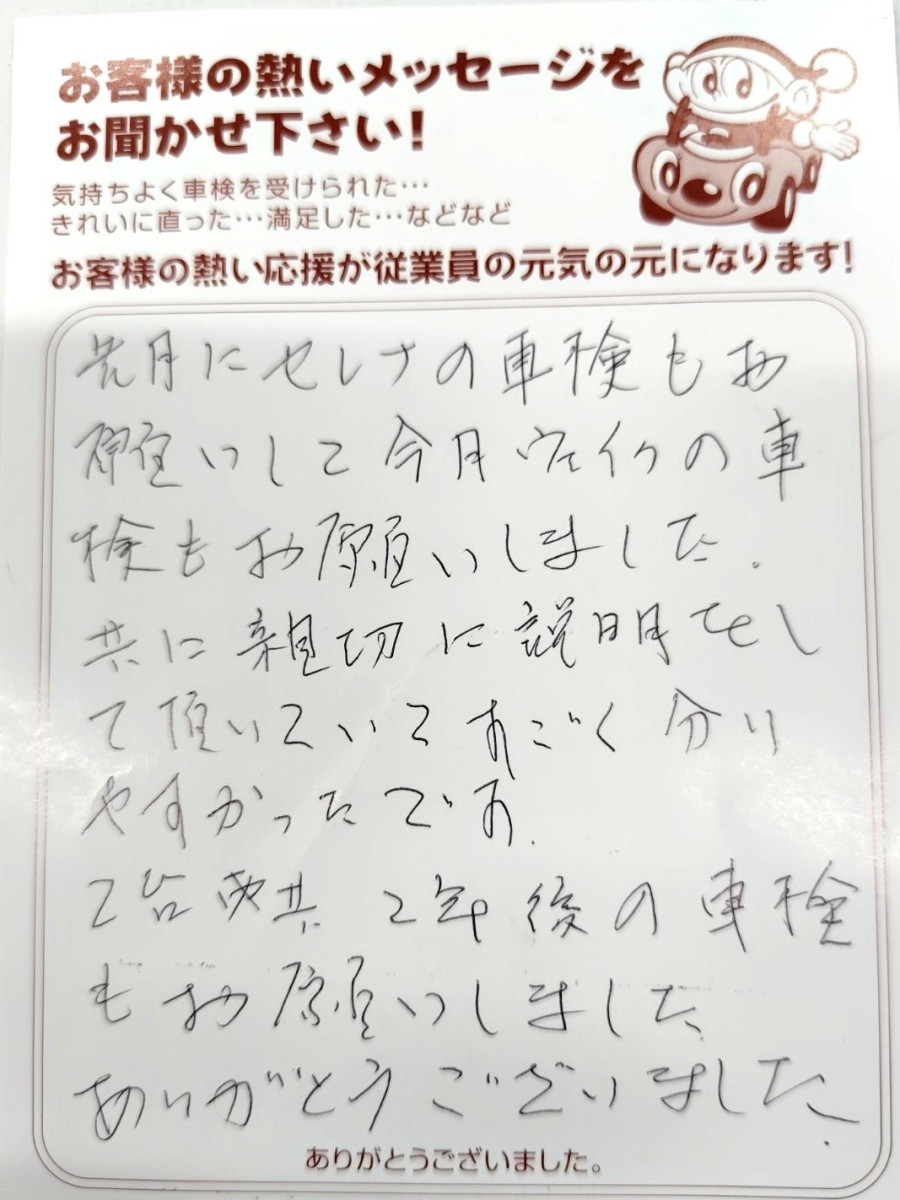 お客様の熱いメッセージを
お聞かせ下さい!
気持ちよく車検を受けられた…
きれいに直った…満足した…などなど
お客様の熱い応援が従業員の元気の元になります!
先月にセレナの車検もお
願いして今月ウェイクの車
検もお願いしました.
共に親切に説明をし
て頂いていてすごく分り
やすかったです.
2台両共 2年後の車検
もお願いしました
ありがとうございました.
ありがとうございました。